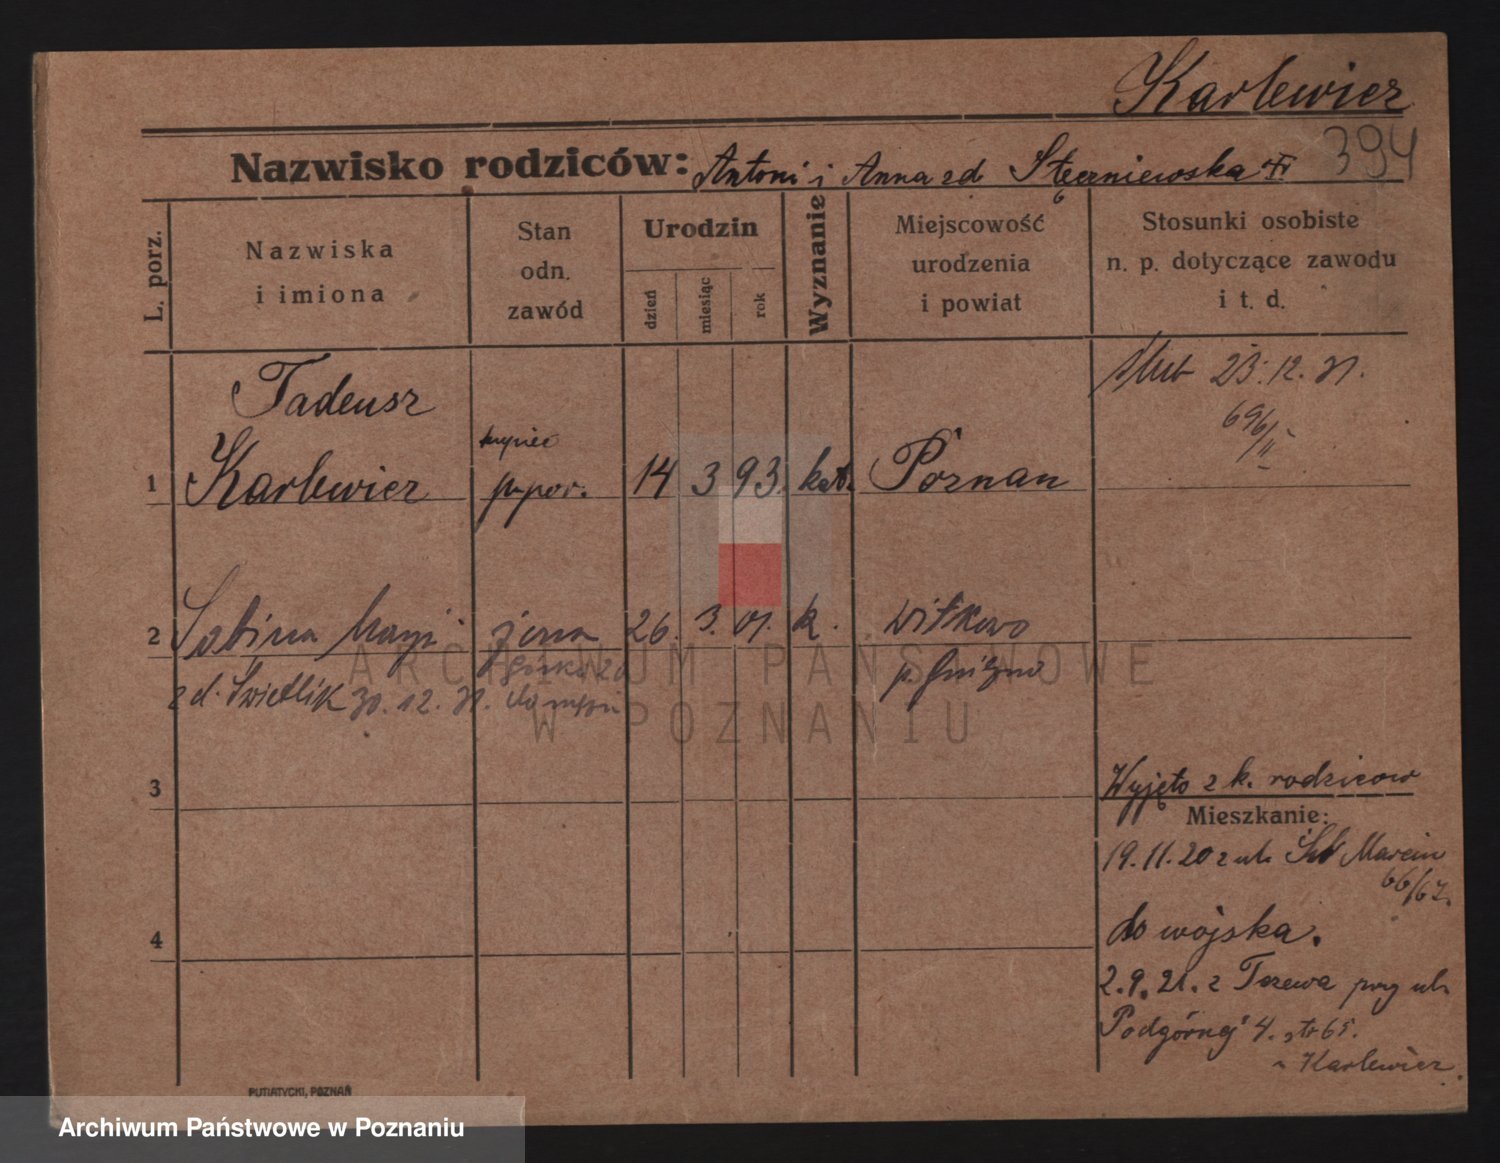 Karlewicz
394
Nazwisko rodziców: Antoni i Anna zd
L. porz.
Nazwiska
i imiona
Stan
odn.
zawód
Urodzin
dzień
miesiąc
rok
Wyznanie
Miejscowość
urodzenia
i powiat
Stosunki osobiste
n. p. dotyczące zawodu
i t. d.
ślub 23.12.21.
696/II
Tadeusz
kupiec
1 Karlewicz ppor. 14 3 93. kat. Poznań
2 Sabina żona 26. 3. 01. k. Witkowo
zd. Świetlik 30.12.21. p. Gniezno
3
Wyjęto z k. rodziców
Mieszkanie:
19.11.20 z ul. Św Marcin
66/67.
4
do wojska.
2.9.21. z Tczewa przy ul.
Podgórnej 4. tr 65.
Karlewicz
PUTIATYCKI, POZNAŃ
ARCHIWUM PAŃSTWOWE
W POZNANIU
Archiwum Państwowe w Poznaniu